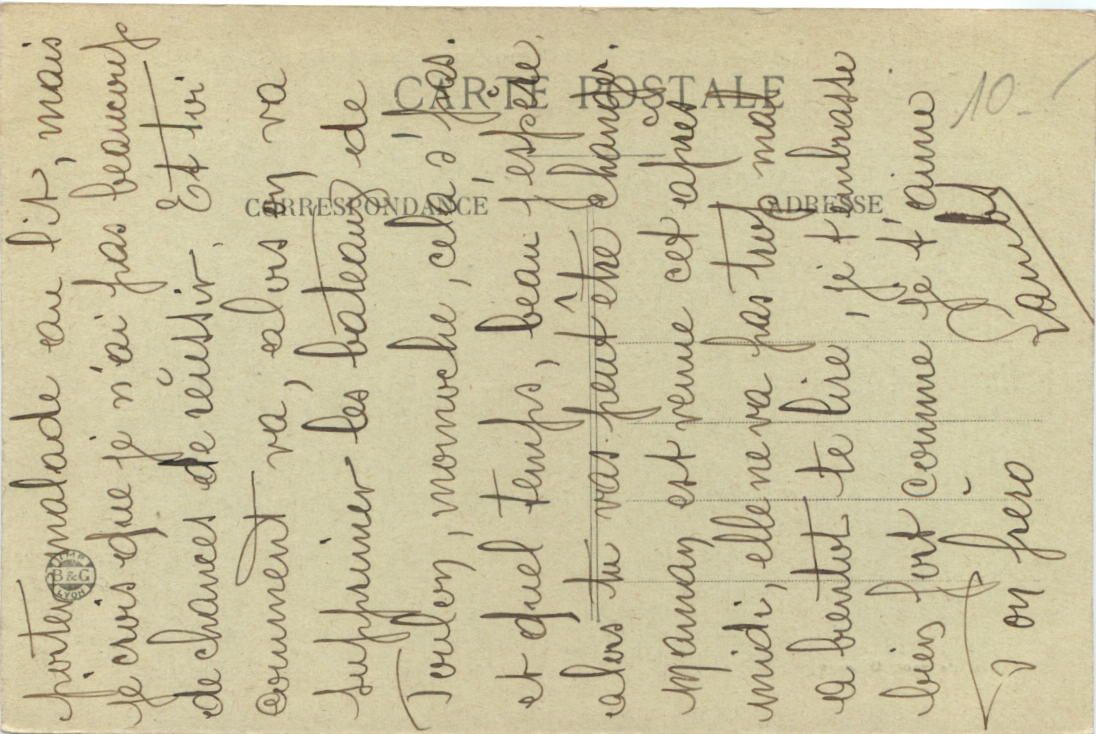 CARTE POSTALE
CORRESPONDANCE
ADRESSE
10.-
IMP
B & G
LYON
porter malade au lit, mais
je crois que je n'ai pas beaucoup
de chances de réussir. Et toi
comment va, alors on va
supprimer les bateaux de
Toulon, monoche, cela s' pas.
et quel temps, beau j'espère
alors tu vas peut être changer.
Maman est venue cet après
midi, elle ne va pas trop mal
a bientot te lire, je t'embrasse
bien fort comme je t'aime
Ton frèro